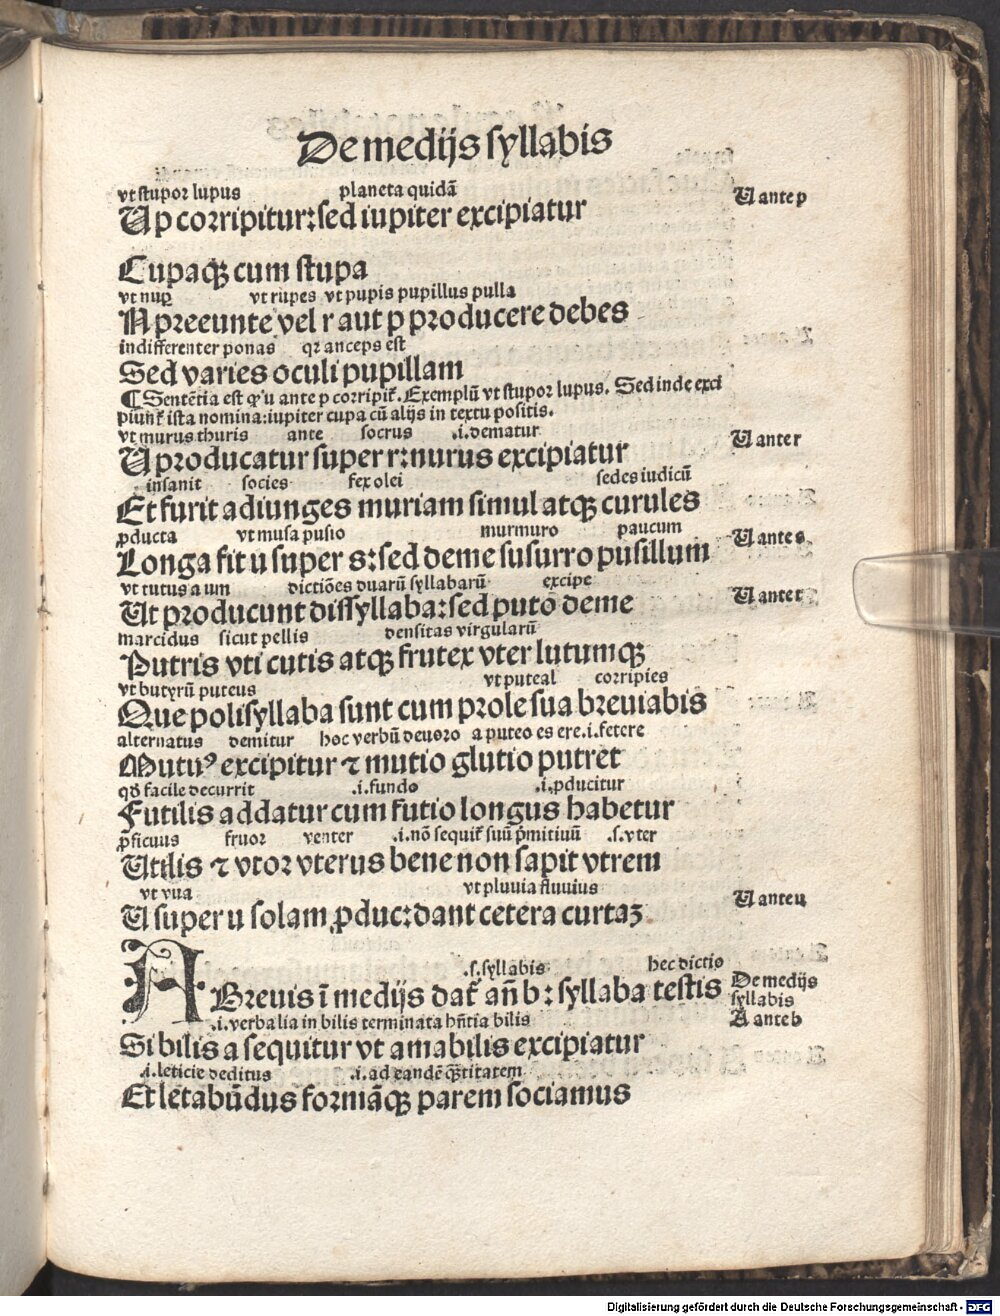 De medijs syllabis
vt stupor lupus planeta quidã
Up corripitur: sed iupiter excipiatur
U ante p
Cupaqꝫ cum stupa
vt nuꝑ vt rupes vt pupis pupillus pulla
N preeunte vel r aut p producere debes
indifferenter ponas qꝛ anceps est
Sed varies oculi pupillam
¶ Sentẽtia est ꝙ u ante p corripit̃. Exemplũ vt stupor lupus. Sed inde exci
piunt̃ ista nomina: iupiter cupa cũ alijs in textu positis.
vt murus thuris ante socrus .i. dematur
U producatur super r: nurus excipiatur
U ante r
insanit socies fex olei sedes iudicũ
Et furit adiunges muriam simul atqꝫ curules
ꝓducta vt musa pusio murmuro paucum
Longa fit u super s: sed deme susurro pusillum
U ante s
vt tutus a um dictiões duarũ syllabarũ excipe
Ut producunt dissyllaba: sed puto deme
U ante t
marcidus sicut pellis densitas virgularũ
Putris vti cutis atqꝫ frutex vter lutumqꝫ
vt butyrũ puteus vt puteal corripies
Que polisyllaba sunt cum prole sua breviabis
alternatus demitur hoc verbũ deuoro a puteo es ere .i. fetere
Mutuꝰ excipitur ⁊ mutio glutio putret
qđ facile decurrit .i. fundo .i. ꝓducitur
Futilis addatur cum futio longus habetur
ꝓficuus fruor venter .i. nõ sequit̃ suũ p̃mitiuũ .s. vter
Utilis ⁊ vtor vterus bene non sapit vtrem
vt vua vt pluuia fluuius
U super u solam ꝓduc: dant cetera curtaꝫ
U ante u
.s. syllabis hec dictio
A Brevis ĩ medijs dat̃ añ b: syllaba testis
De medijs
syllabis
.i. verbalia in bilis terminata hñtia bilis
A ante b
Si bilis a sequitur vt amabilis excipiatur
.i. leticie deditus .i. ad eandẽ qꝫ̃titatem
Et letabũdus formãqꝫ parem sociamus
Digitalisierung gefördert durch die Deutsche Forschungsgemeinschaft - DFG